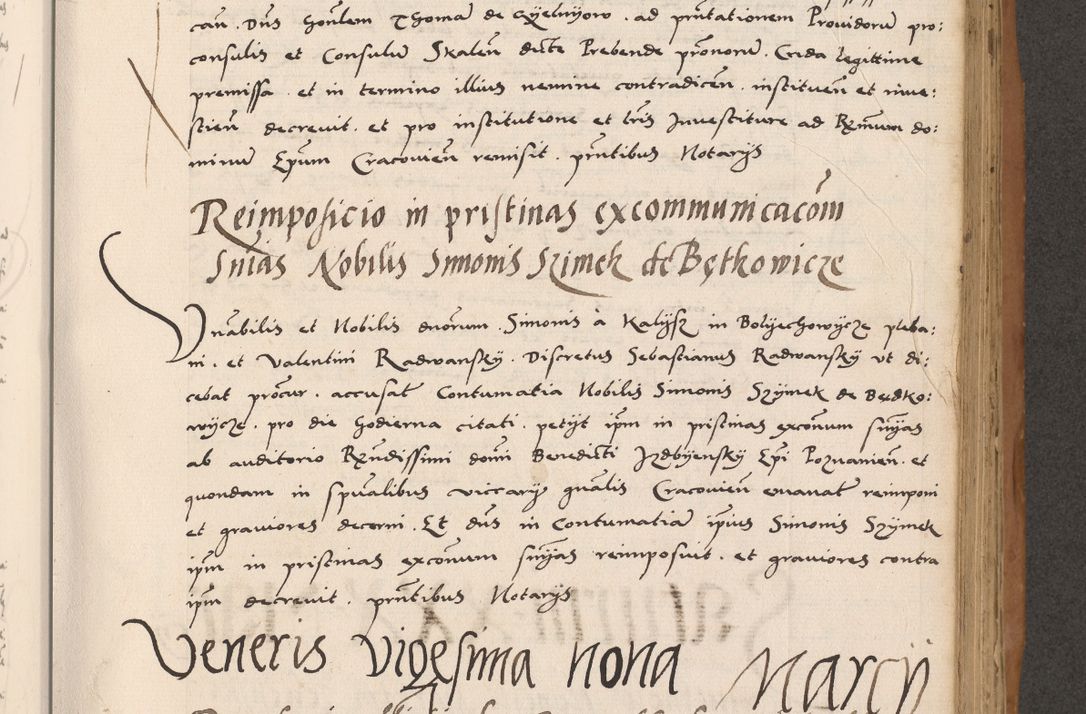 cań . Dńs Honlem Thomā de Xyelnyow . ad pñtationem Providorū pro:
consulis et Consulū Skaleń dicte Prebende p̄ronorū . Crida legittime
premissa . et in termino illius nemine contradiceń . institueń et inve:
stień decrevit . et pro institutione et lr̄is Investiture ad Rxm̄um do:
minū Ep̄um Cracovień remisit . pn̄tibus Notarys
Reimposicio in pristinas excommunicacōm
snīas Nobilis Simonis Szimek de Bętkowicze
Vn̄abilis et Nobilis dnōrum . Simonis a Kalysz in Bolyechowycze pleba:
ni . et Valentini Radwansky . Discretus Sebastianus Radwansky ut di:
cebat prōcur . accusat̄ Contumatia Nobilis Simonis Szymek de Będko:
wycze . pro die hodierna citati . petyt ip̄m in pristinas excōnum sn̄yas
ab auditorio Rxn̄dissimi dom̄i Benedicti Izdbyensky Ep̄i Poznanień . et
quondam in sp̄ualibus viccarÿ gn̄alis Cracovień emanat̄ reimponi
et graviores decerni . Et dn̄s in Contumatiā ip̄ius Simonis Szymek
ip̄m in pristinas excōnum sn̄yas reimposuit . et graviores contra
ip̄m decrevit . pn̄tibus Notarys
Veneris Vigesima nona Marcÿ